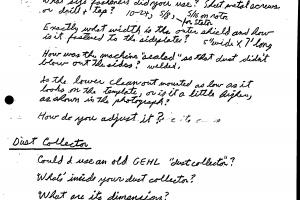 What size fasteners did you use? Sheet metal screws
or drill & tap? 10-24, 5/8, 5/16 on into
for stator
Exactly what width is the outer shield and how
is it fastened to the sideplates? 5" wide x 7" long
How was the machine "sealed" so that dust didn't
blow out the sides? welded.
Is the lower cleanout mounted as low as it
looks on the template, or is it a little higher,
as shown in the photograph?
How do you adjust it?
Dust Collector
Could I use an old GEHL "dust collector"?
What's inside your dust collector?
What are its dimensions?